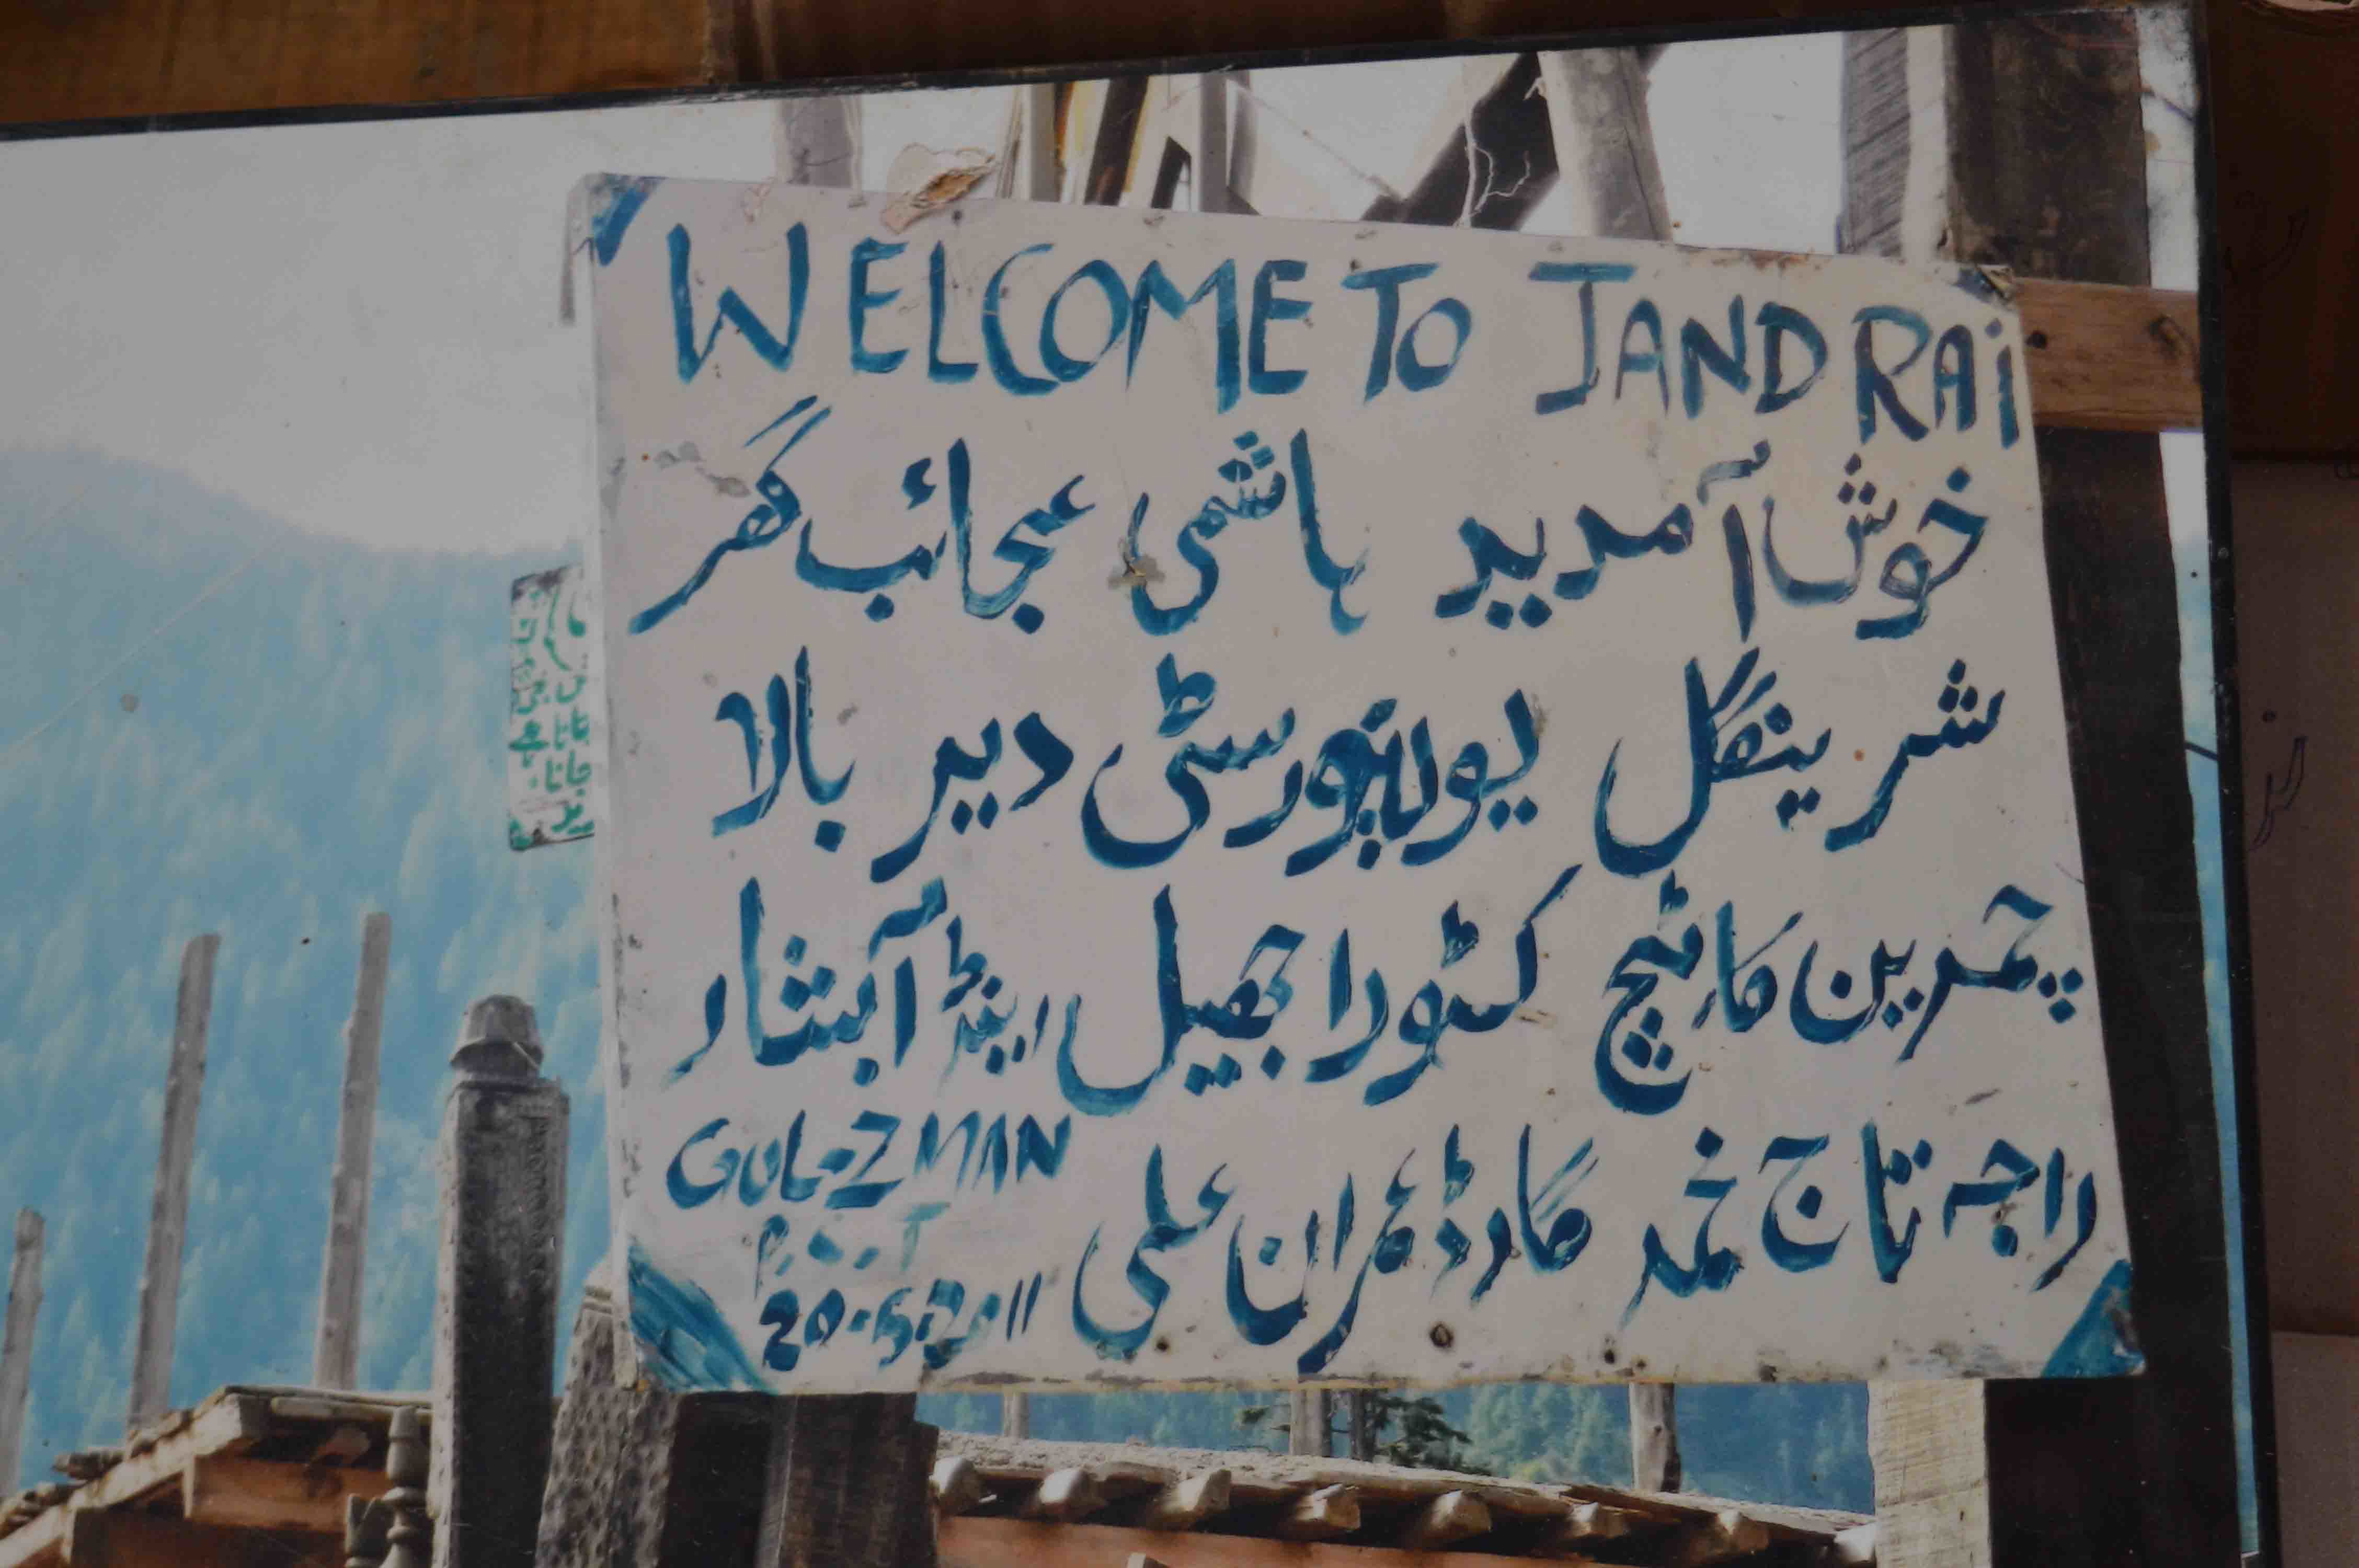 WELCOME TO JANDRAi
خوش آمدید ہاشمی عجائب گھر
شرینگل یونیورسٹی دیر بالا
چمربین کاٹیج کٹورا جھیل اینڈ آبشار
راجہ تاج محمد گارڈ عمران علی
GUL.ZMAN
20.5.2011